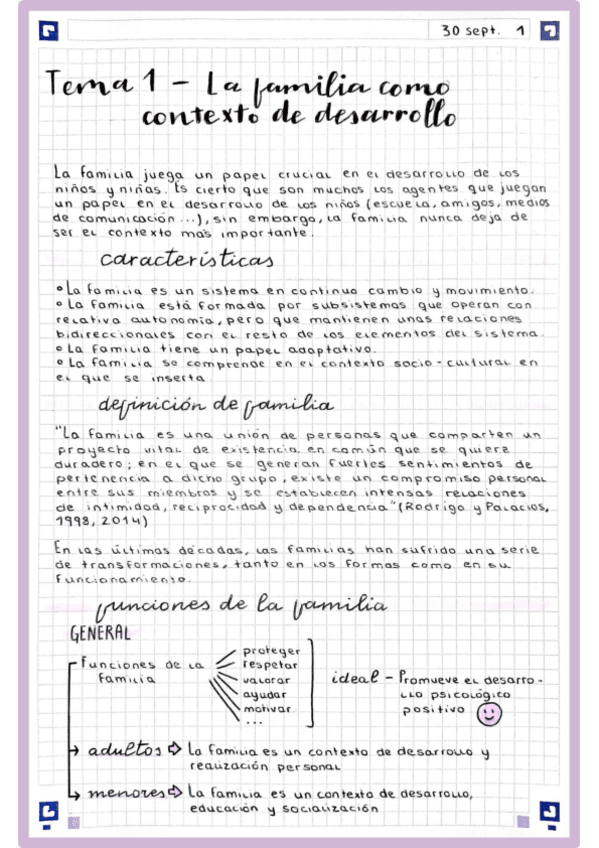 30 sept. 1
Tema 1 - La familia como
contexto de desarrollo
La familia juega un papel crucial en el desarrollo de los
niños y niñas. Es cierto que son muchos los agentes que juegan
un papel en el desarrollo de los niños (escuela, amigos, medios
de comunicación...), sin embargo, la familia nunca deja de
ser el contexto más importante.
características
• La familia es un sistema en continuo cambio y movimiento.
• La familia está formada por subsistemas que operan con
relativa autonomía, pero que mantienen unas relaciones
bidireccionales con el resto de los elementos del sistema.
• La familia tiene un papel adaptativo.
• La familia se comprende en el contexto socio-cultural en
el que se inserta
definición de familia
"La familia es una unión de personas que comparten un
proyecto vital de existencia en común que se quiere
duradero; en el que se generan fuertes sentimientos de
pertenencia a dicho grupo, existe un compromiso personal
entre sus miembros y se establecen intensas relaciones
de intimidad, reciprocidad y dependencia" (Rodrigo y Palacios,
1998, 2014)
En las últimas décadas, las familias han sufrido una serie
de transformaciones, tanto en los formas como en su
funcionamiento.
funciones de la familia
GENERAL
Funciones de la
familia
proteger
respetar
valorar
ayudar
motivar
...
ideal - Promueve el desarro-
llo psicológico
positivo
adultos ⇨ La familia es un contexto de desarrollo y
realización personal
menores ⇨ La familia es un contexto de desarrollo,
educación y socialización